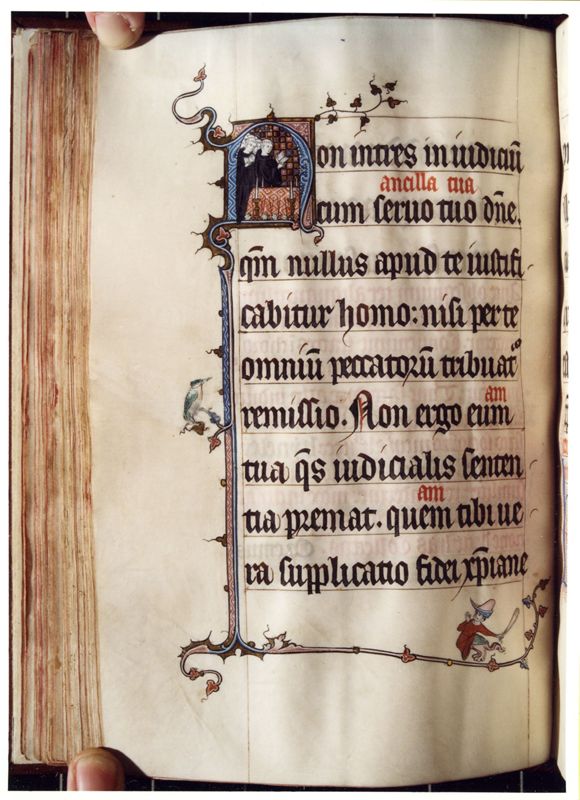 Non intres in iudiciū
ancilla tua
cum seruo tuo dn̄e.
qm̄ nullus apud te iustifi
cabitur homo: nisi per te
omniū peccatorū tribuat᷑
am
remissio. Non ergo eum
tua q̄s iudicialis senten
am
tia premat. quem tibi ue
ra supplicatio fidei xp̄iane